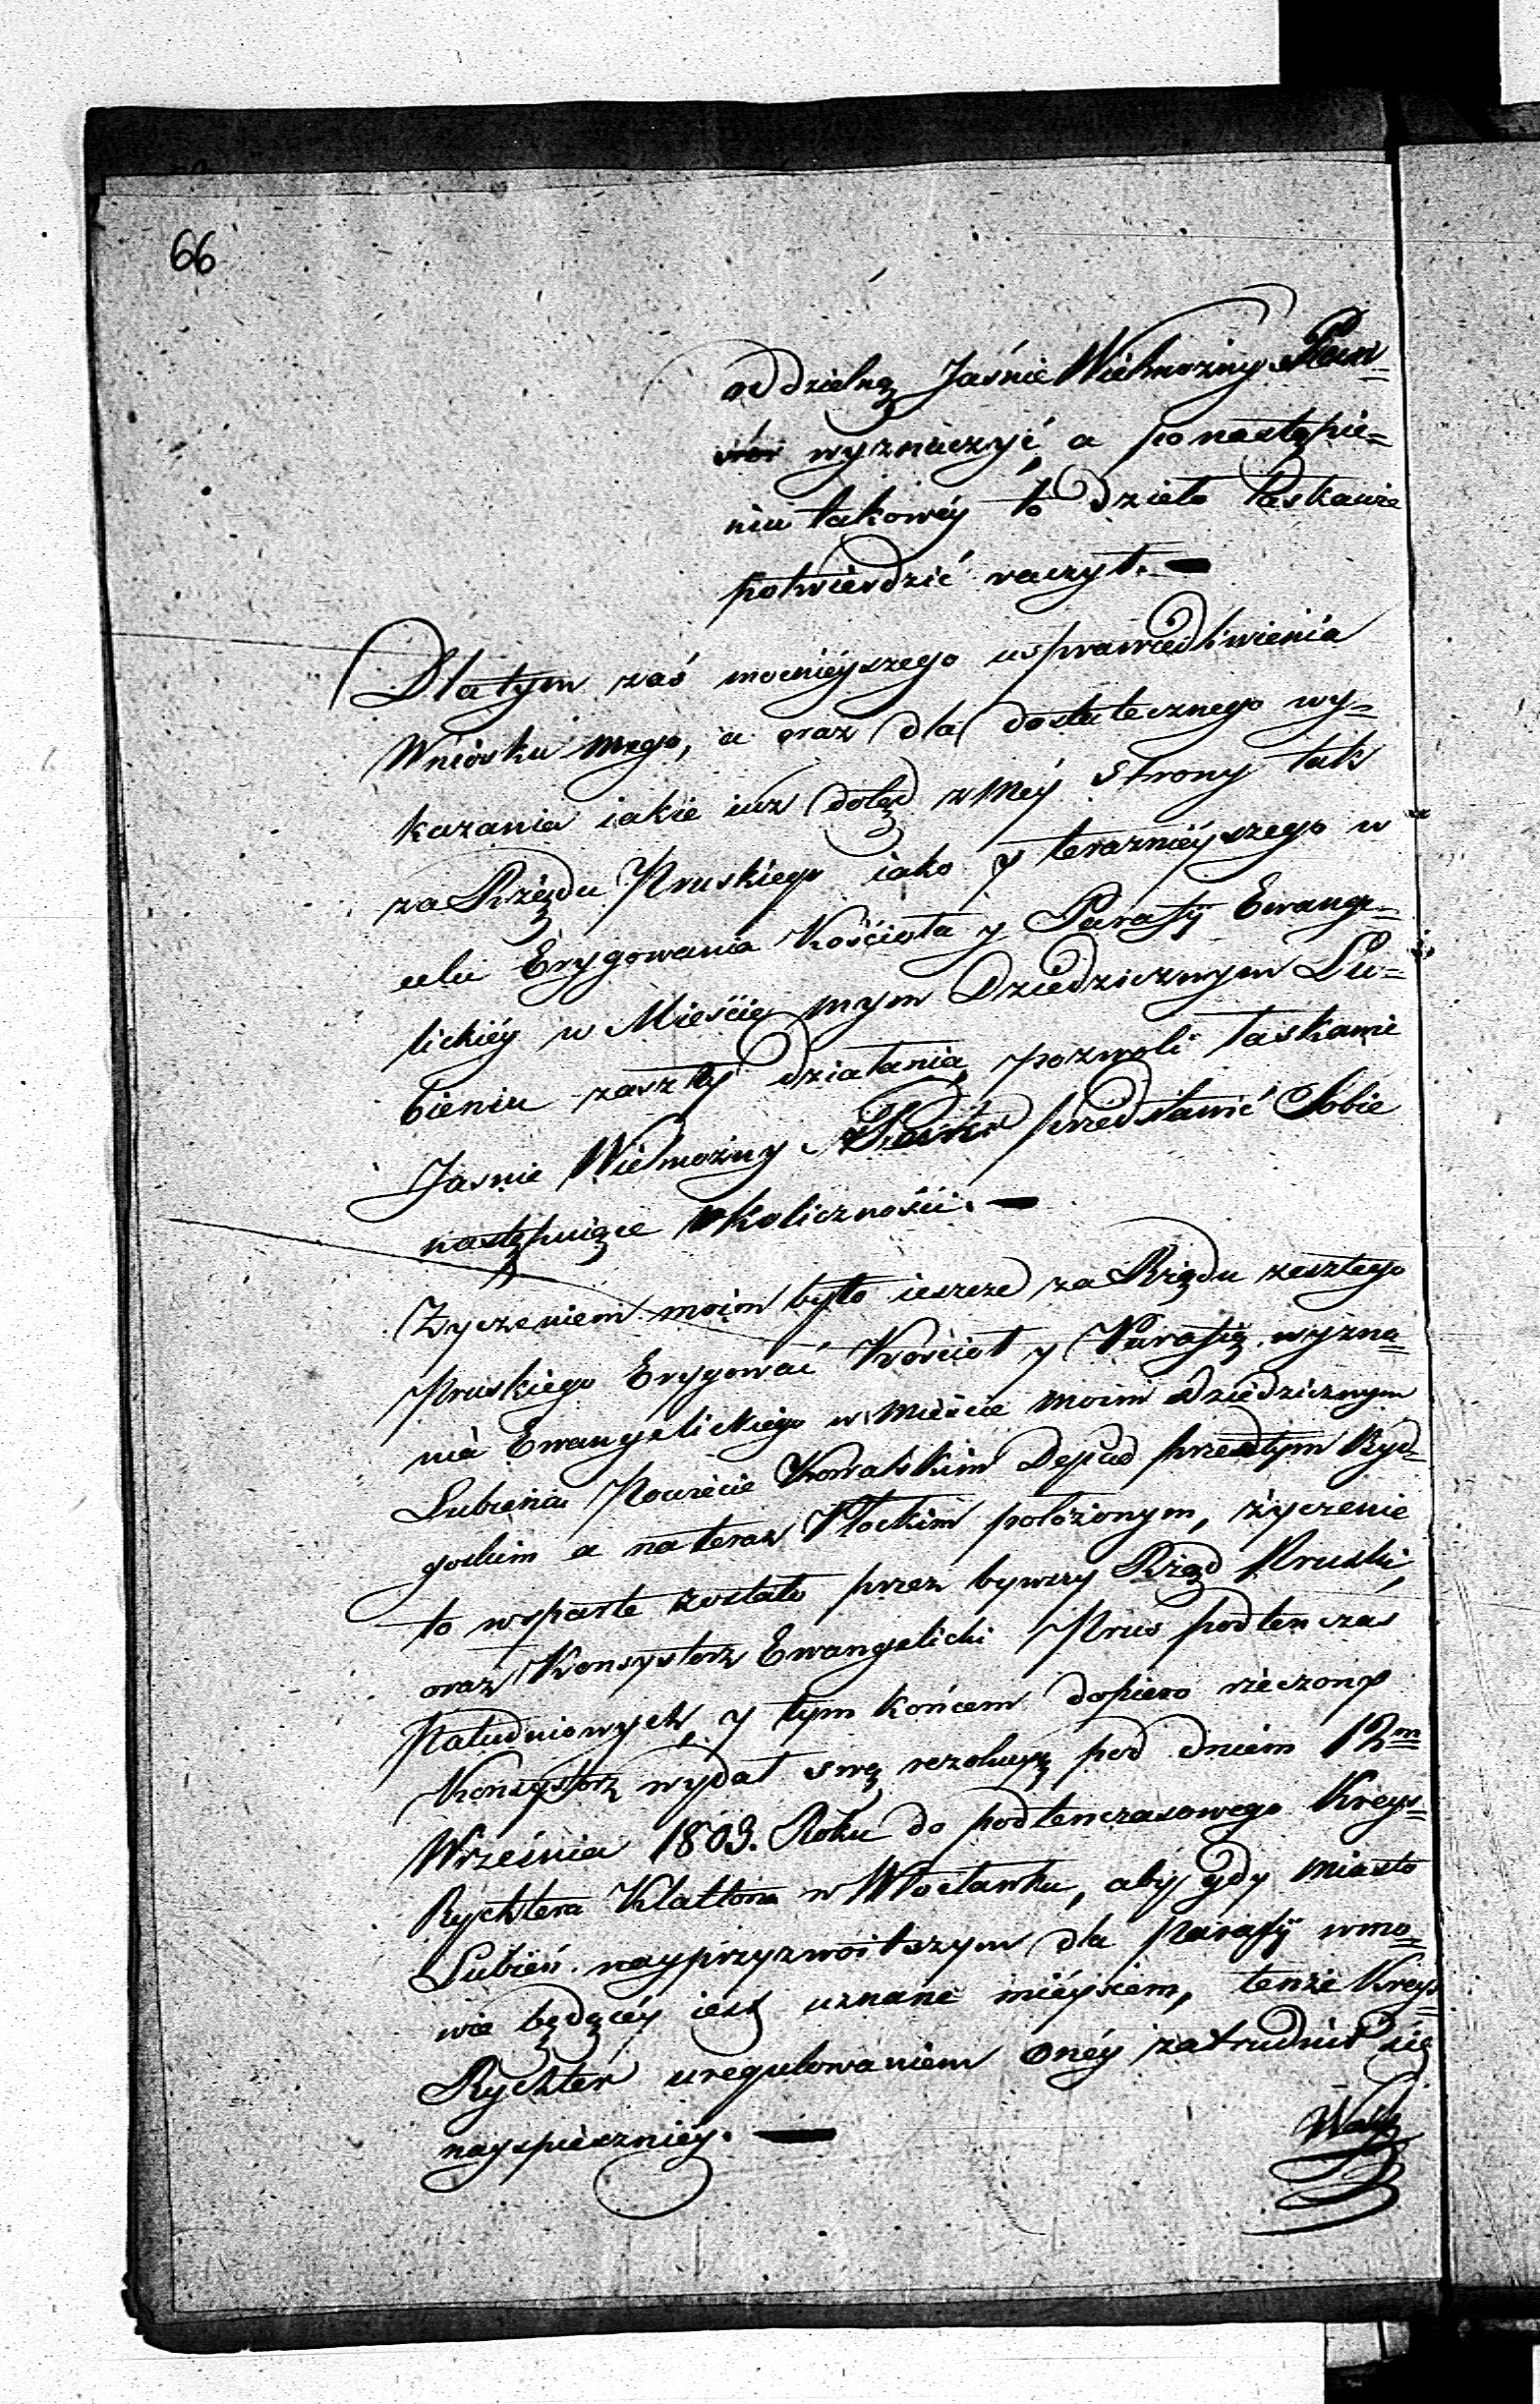 66
oddzielną Jaśnie Wielmożny Pan
wyznaczyć, a po nastąpie=
niu takowéy to dzieło łaskawie
potwierdzić raczył. —
Dla tym zaś mocniéyszego usprawiedliwienia
Wniosku mego, a oraz dla dostatecznego wy=
kazania iakie iuz dotąd z Méy Strony tak
za Rządu Pruskiego iako y teraznieyszego w
celu Erygowania Kościoła y Parafÿ Ewange=
lickiéy w Mieście mym Dziedzicznym Lu=
bieniu zaszły działania, pozwoli łaskawie
Jasnie Wielmożny Pan przedstawić Sobie
następuiące okoliczności. —
Zyczeniem moim było ieszcze za Rządu zeszłego
Pruskiego Erygować Kościoł y Parafię wyzna=
nia Ewangelickiego w Mieście moim dziedzicznym
Lubieniu Powiecie Kowalskim Depad przedtym Byd=
goskim a na teraz Płockim położonym, życzenie
to wsparte zostało przez bywszy Rząd Pruski,
oraz Konsystorz Ewangelicki Prus podtenczas
Południowych, y tym końcem dopiero rzeczony
Konsystorz wydał swą rezolucyą pod dniem 12m
Września 1803. Roku do podtenczasowego Kreys=
Rychtera Klattona w Włocławku, aby gdy miasto
Lubień nayprzyzwoitszym dla Parafÿ w mo=
wie będącéy iest uznane miéyscem, tenże Kreys=
Rychter uregulowaniem onéy zatrudnił się
nayspieszniéy. —